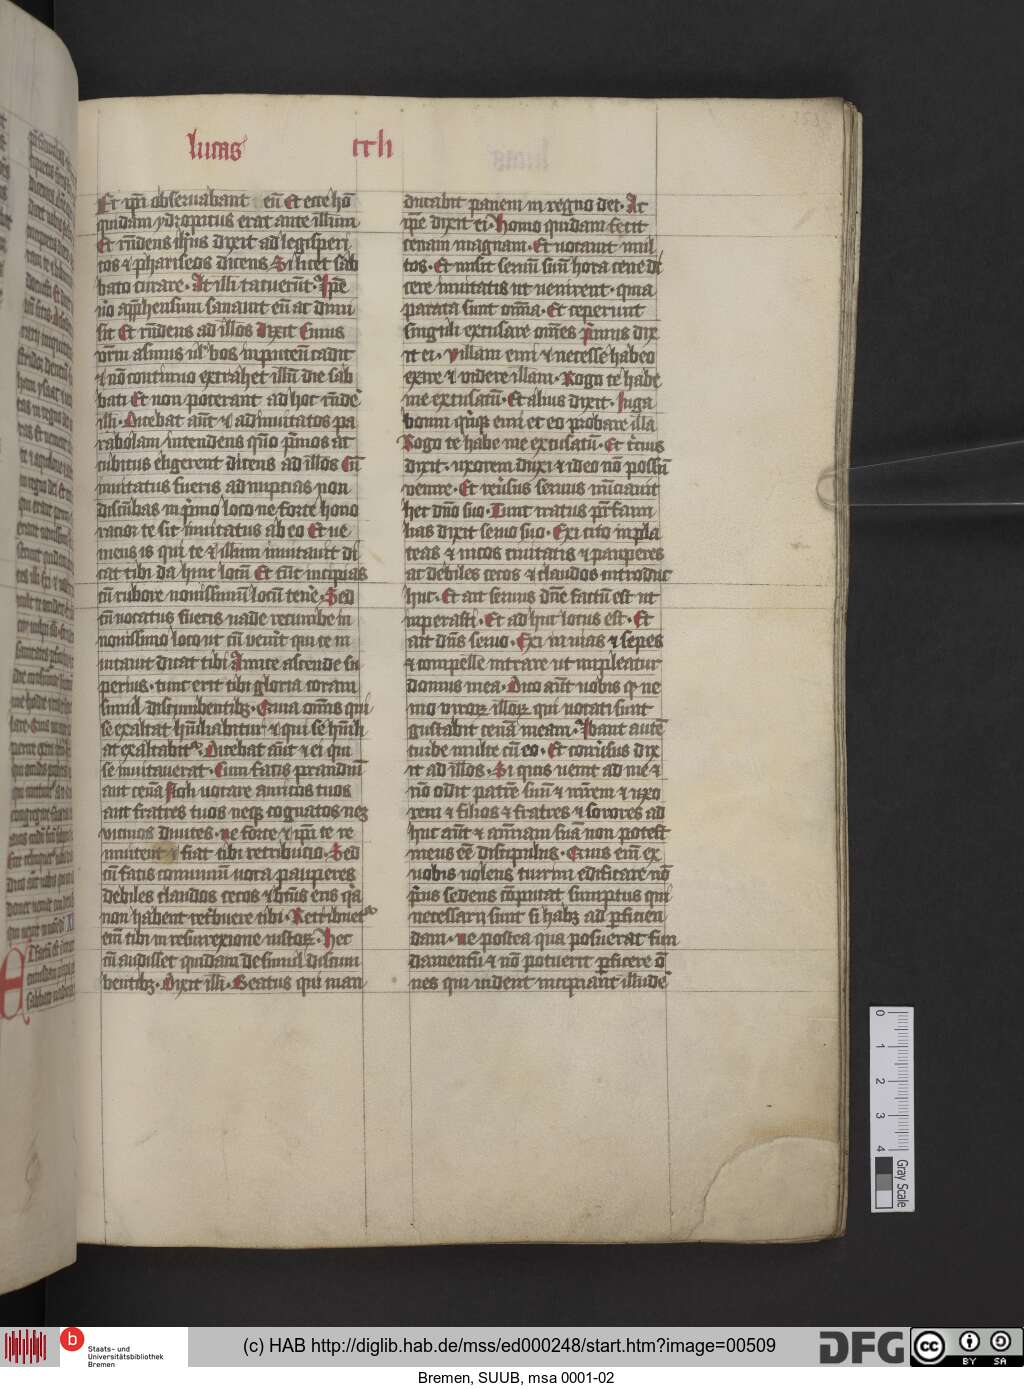 lucas ccli
Et ip̄i obseruabant eū Et ecce hō
quidam ydropicus erat ante illum
Et rn̄dens ih̄us dixit ad legisperi
tos ⁊ phariseos dicens Si licet sab
bato curare· At illi tacuerūt· Ip̄e
u̾o app̄hensum sanauit eū ac dimi
sit Et rn̄dens ad illos dixit Cuius
vr̄m asinus ul̾ bos in puteū cadit
⁊ nō continuo extrahet illū die sab
bati Et non poterant ad hoc rn̄de̾
illi· Dicebat aūt ⁊ ad inuitatos pa
rabolam intendens quō p̄mos ac
cubitus eligerent dicens ad illos Cū
inuitatus fueris ad nuptias non
discūbas in p̄mo loco ne forte hono
racior te sit inuitatus ab eo Et ve
niens is qui te ⁊ illum inuitauit di
cat tibi da huic locū Et tūc incipias
cū rubore nouissimū locū tene̾· Sed
cū vocatus fueris uade recumbe in
nouissimo loco ut cū ven̾it qui te in
uitauit dicat tibi Amice ascende su
perius· tunc erit tibi gloria coram
simul discumbentibꝫ· Quia om̄is qui
se exaltat hūiliabitur ⁊ qui se hūili
at exaltabit᷑· Dicebat aūt ⁊ ei qui
se inuitauerat· Cum facis prandiū
aut cenā Noli uocare amicos tuos
aut fratres tuos neqꝫ cognatos neqꝫ
vicinos diuites· ne forte ⁊ ip̄i te re
inuitent ⁊ fiat tibi retribucio· Sed
cū facis conuiuiū uoca pauperes
debiles claudos cecos ⁊ bt̄us eris q̄a
non habent ret̾buere tibi· Retribuet᷑
enī tibi in resurrexione iustoꝝ· Hec
cū audisset quidam de simul discum
bentibꝫ· Dixit illi· Beatus qui man
ducabit panem in regno dei· At
ip̄e dixit ei· Homo quidam fecit
cenam magnam· Et uocauit mul
tos· Et misit seruū suū hora cene di
cere inuitatis ut uenirent· quia
parata sunt om̄ia· Et ceperunt
singuli excusare om̄es p̄mus dix
it ei· villam emi ⁊ necesse habeo
exire ⁊ videre illam· Rogo te habe
me excusatū· Et alius dixit· Iuga
boum qīqꝫ emi et eo probare illa
Rogo te habe me excusatū· Et t̾cius
dixit· uxorem duxi ⁊ ideo nō possū
venire· Et reu̾sus seruus nūciauit
hec dn̄o suo· Tunc iratus pr̄ fami
lias dixit seruo suo· Exi cito in pla
teas ⁊ uicos ciuitatis ⁊ pauperes
ac debiles cecos ⁊ claudos introduc
huc· Et ait seruus dn̄e factū est ut
imperasti· Et adhuc locus est· Et
ait dn̄s seruo· Exi in uias ⁊ sepes
⁊ compelle intrare ut impleatur
domus mea· Dico aūt uobis qꝫ ne
mo viroꝝ illoꝝ qui uocati sunt
gustabit cenā meam· Ibant autē
turbe multe cū eo· Et conu̾sus dix
it ad illos· Si quis uenit ad me ⁊
nō odit patrē suū ⁊ mr̄em ⁊ uxo
rem ⁊ filios ⁊ fratres ⁊ sorores ad
huc aūt ⁊ aīam suā non potest
meus eē discipulus· Quis enī ex
uobis uolens turrim edificare nō
p̾us sedens cōputat sumptus qui
necessarij sunt si habꝫ ad ꝑficien
dam· ne postea qua posuerat fun
damentū ⁊ nō potuerit ꝑficere ō
nes qui uident incipiant illude̾
0 1 2 3 4
Gray Scale
b Staats- und
Universitätsbibliothek
Bremen
(c) HAB http://diglib.hab.de/mss/ed000248/start.htm?image=00509
DFG
cc BY SA
Bremen, SUUB, msa 0001-02